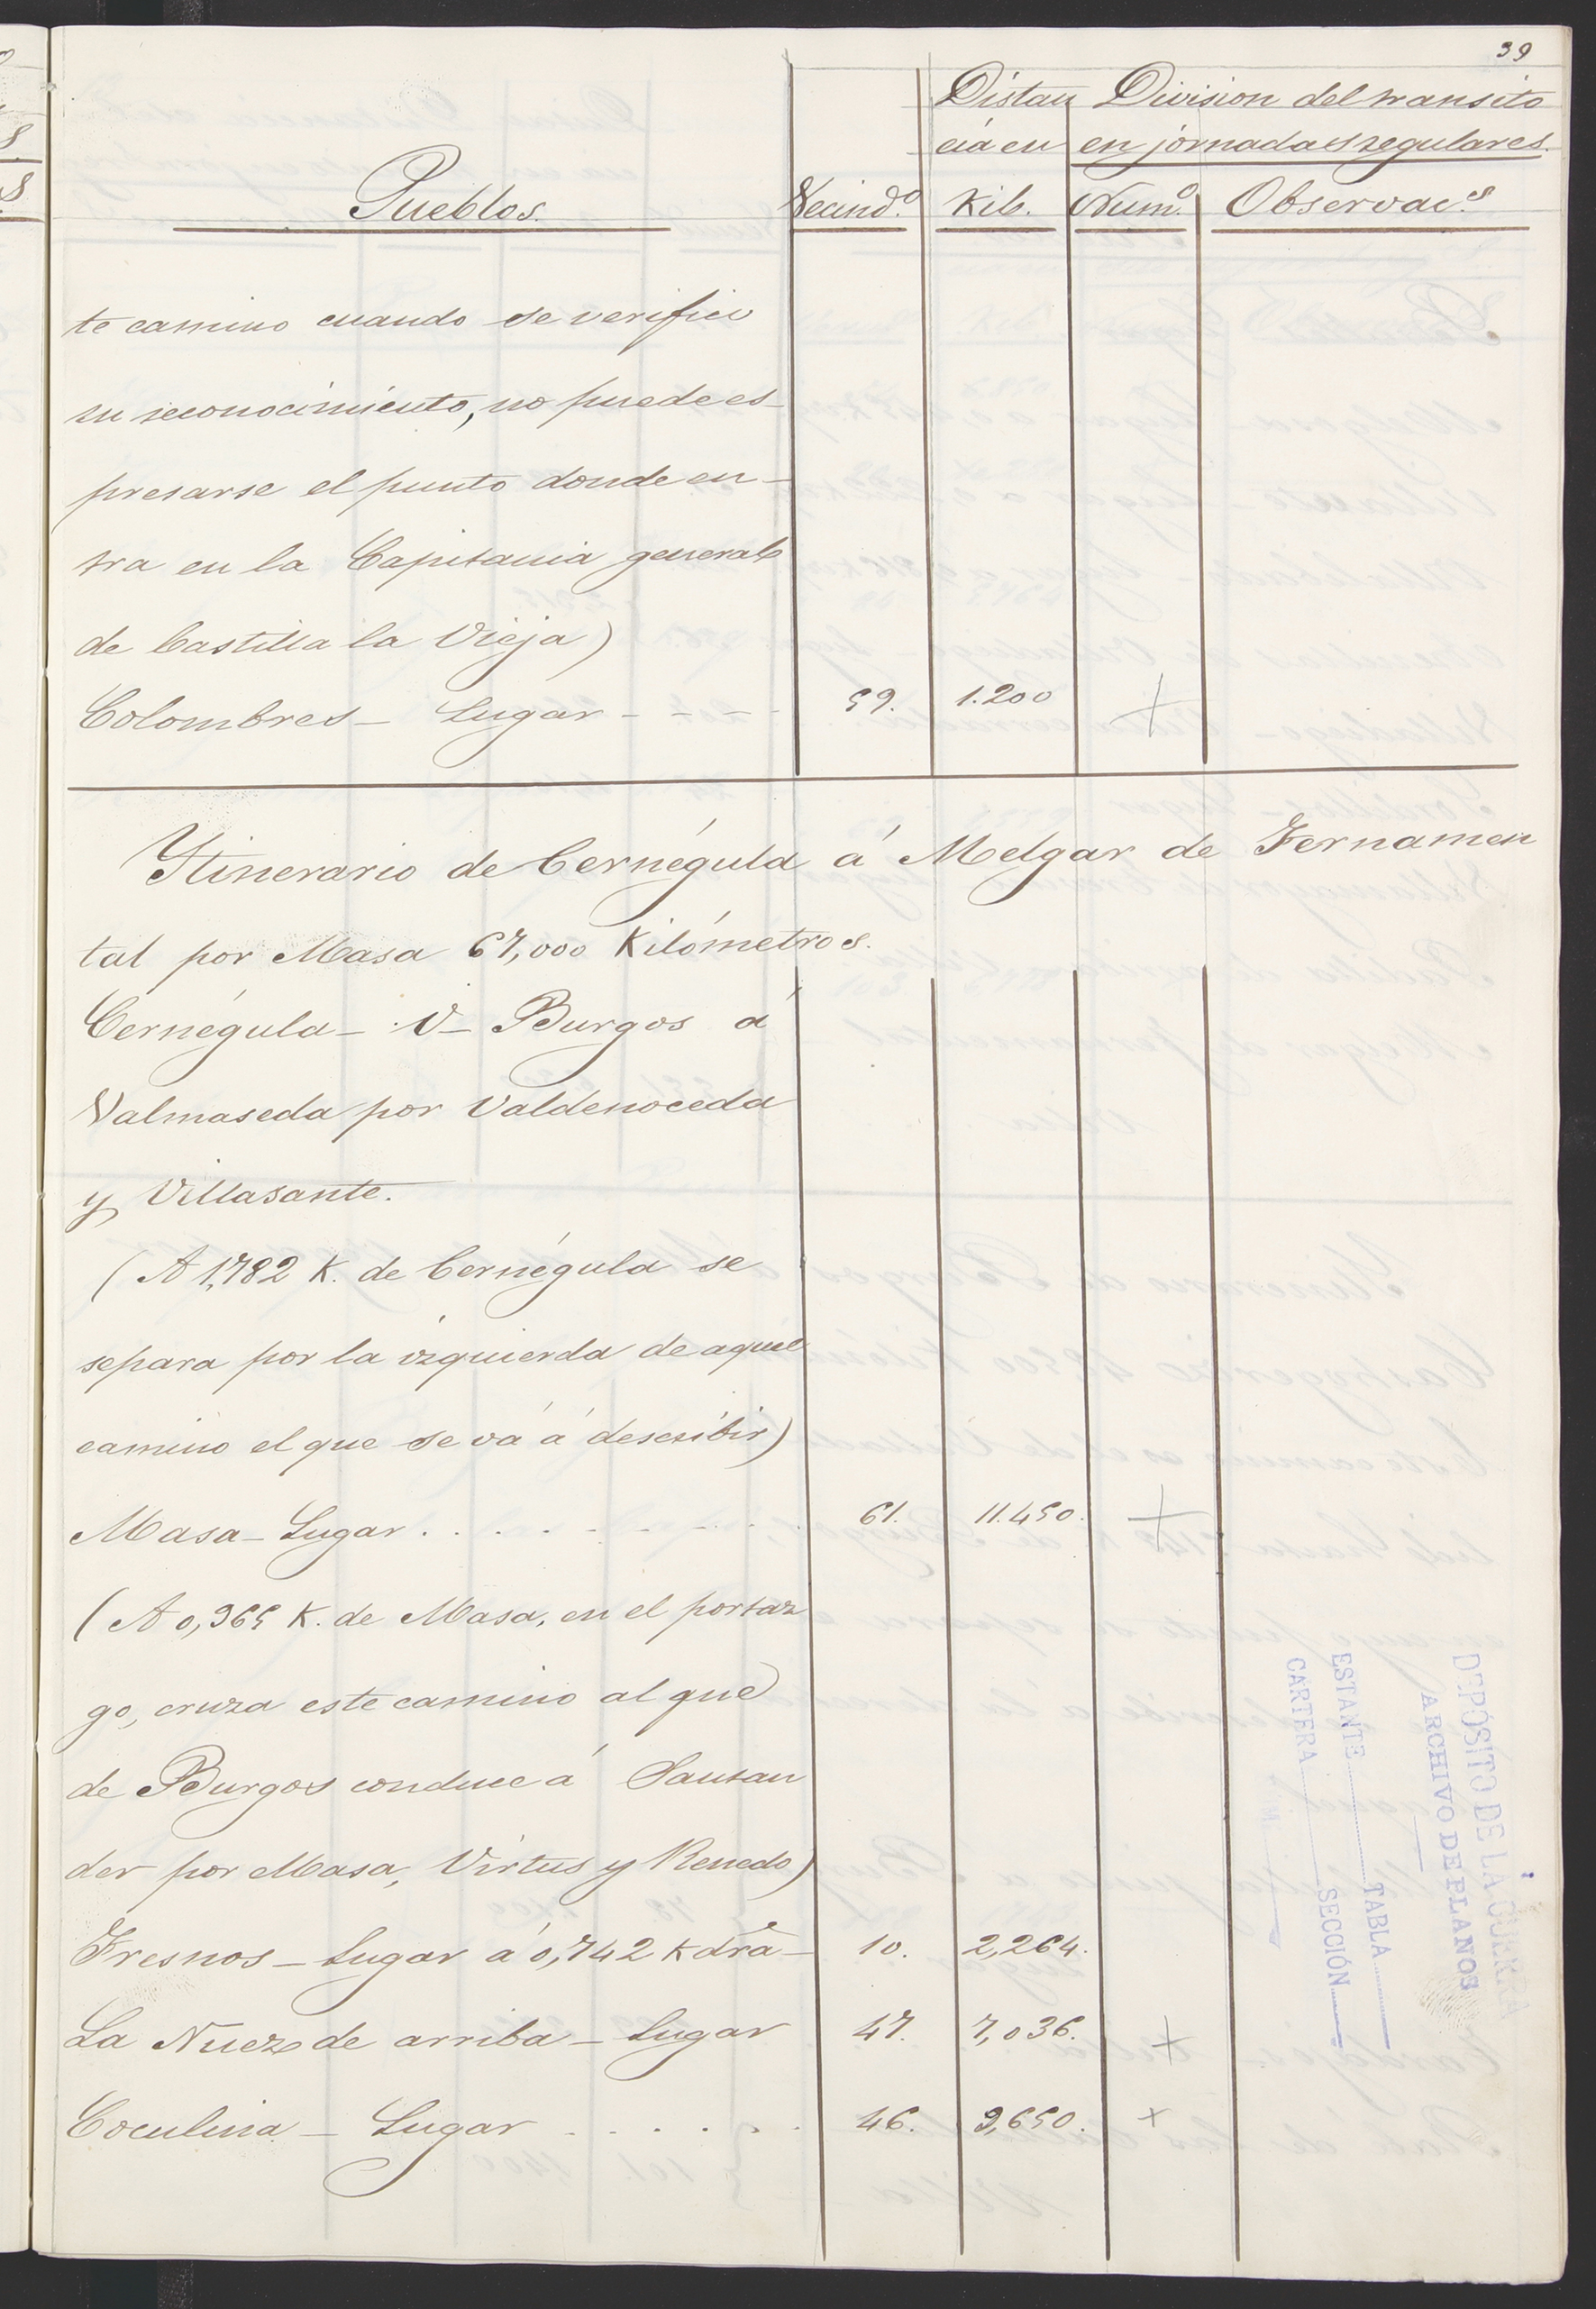 39
Distan Division del transito
cia en en jornadas regulares.
Pueblos. Vecind.º Kil. Num.º Observac.s
te camino cuando se verificó
su reconocimiento, no puede es-
presarse el punto donde en-
tra en la Capitania general
de Castilla la Vieja)
Colombres - Lugar - - - - 59. 1.200 +
Ytinerario de Cernégula á Melgar de Fernamen
tal por Masa 67,000 Kilómetros.
Cernégula - V - Burgos á
Valmaseda por Valdenoceda
y Villasante.
(A 1,782 K. de Cernégula se
separa por la izquierda de aquel
camino el que se vá á describir)
Masa - Lugar . . . . . . . . . 61. 11.450. +
(A 0,965 K. de Masa, en el portaz
go, cruza este camino al que
de Burgos conduce á Santan
der por Masa, Virtus y Renedo)
Fresnos - Lugar á 0,742 K dra - 10. 2,264.
La Nuez de arriba - Lugar 47. 7,036. +
Coculina - Lugar . . . . . . 46. 9,650. +
DEPÓSITO DE LA GUERRA
ARCHIVO DE PLANOS
ESTANTE TABLA
CARTERA SECCIÓN